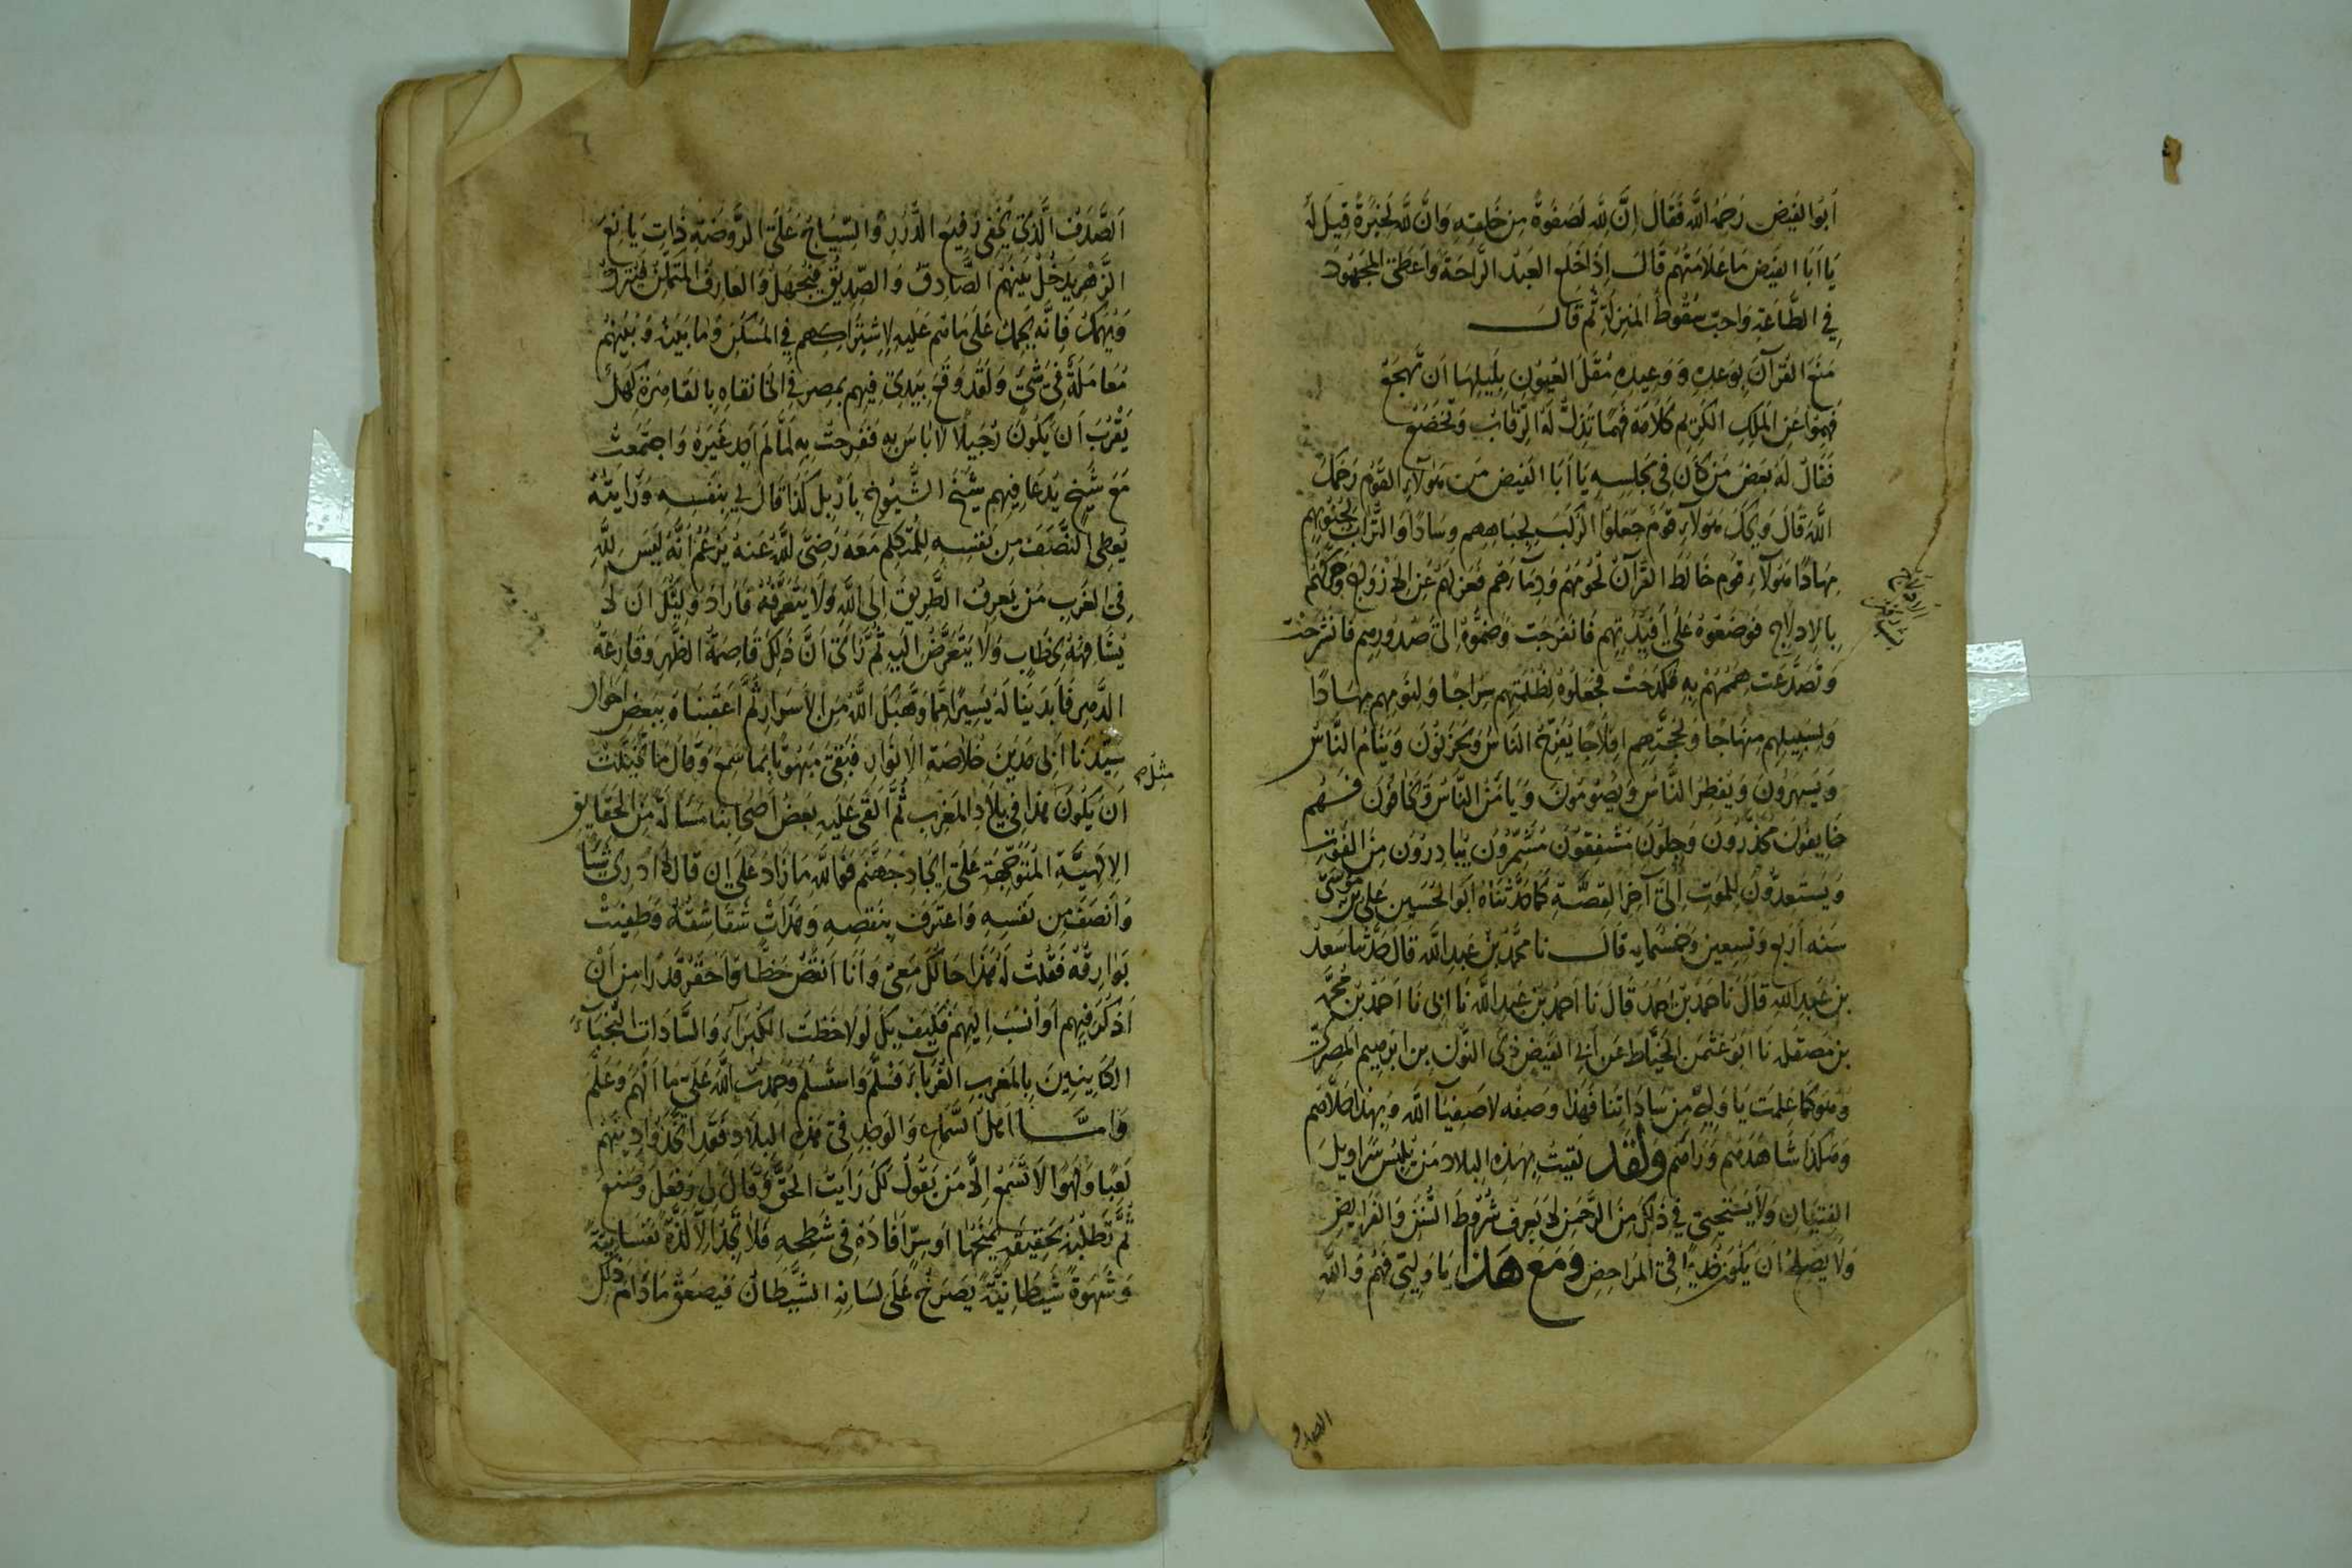 اَبُو الفَيض رَحمَهُ اللَّه فَقَالَ اِنَّ لِلَّهِ لَصَفوَةً مِن خَلقِهِ وَانَّ لِلَّه لَخِيَرَةً قِيلَ لَهُ
يَا اَبَا الفَيض مَا عَلَامَتُهُم قَالَ اِذَا خَلَع العَبدُ الرَّاحَةَ وَاَعطَى المجهُودَ
فِي الطَّاعَةِ وَاحبّ سُقُوطَ المَنزِلَةِ ثُمَّ قَالَ
مَنَعَ القُرآنُ بِوَعدِهِ وَوَعِيدِهِ مُقَلَ العُيُونِ بِلَيلِهَا اَن تَهجَعُ
فَهِمُوا عَنِ المَلِكِ الكَرِيمِ كَلَامَهُ فَهمًا تَذِلُّ لَهُ الرِّقَابُ وَتَخضَعُ
فَقَالَ لَهُ بَعضُ مَن كَانَ فِي مَجلِسِهِ يَا اَبَا الفَيض مَن هَؤلَآءِ القَوم رَحمَكَ
اللَّهُ قَالَ وَيحَكَ هَؤلَآءِ قَومٌ جَعَلُوا الرُّكَبَ لِجِبَاهِهِم وِسَادًا وَالتُّرَابَ لِجُنُوبِهِم
مِهَادًا هَؤلَآءِ قَوم خَالَطَ القُرآنُ لُحُومَهُم وَدِمَآءَهُم فَعَزلَهُم عَنِ الازوَاجِ وَحَرَّكَهُم
بِالاِدلَاجِ فَوَضَعُوهُ عَلَى اَفئِدَتِهِم فَانفَرَجَت وَضَمُّوهُ اِلَى صُدُورِهِم فَانشَرَحَت
وَتَصَدَّعَت هِمَمُهُم بِهِ فَكَدَحَت فَجَعَلُوهُ لِظُلمَتِهِم سِرَاجًا وَلِنَومِهِم مِهَادًا
وَلِسَبِيلِهِم مِنهَاجًا وَلِحُجَّتِهِم اِفلَاجًا يَفرَحُ النَّاسُ وَيَحزَنُونَ وَيَنَامُ النَّاسُ
وَيَسهَرُونَ وَيُفطِرُ النَّاسُ وَيَصُومُونَ وَيَامَنُ النَّاسُ وَيَخَافُونَ فَهُم
خَايِفُونَ حَذِرُونَ وَجِلُونَ مُشفِقُونَ مُشَمِّرُونَ يُبَادِرُونَ مِنَ الفَوتِ
وَيَستَعِدُّونَ لِلمَوتِ اِلَى آخِرِ القِصَّةِ كَمَا حَدَّثَنَاهُ اَبُو الحُسَين عَلِى بن مُوسَى
سَنه اَربَع وَتِسعِين وَخَمسمِايه قَالَ نا محمَّدُ بنُ عَبدِ اللَّه قَالَ حَدَّثَنَا سَعدُ
بن عَبدِ اللَّهِ قَالَ نَا حَمدُ بنُ اَحمَدَ قَالَ نَا اَحمَدُ بنُ عَبدِ اللَّه نَا ابِى نَا اَحمَدُ بنُ مُحَمَّد
بن مَصقَله نَا ابُو عُثمَن الخَيَّاط عَن اَبِى الفَيض ذِى النُّون بن ابرَهِيم المِصرِى
وَهوَ كَمَا عَلِمتَ يَا وَلِى مِن سَادَاتِنَا فَهَذَا وَصفُه لاَصفِيَآ اللَّه وَبِهَذَا حَلَّاهُم
وَهَكَذَا شَاهَدَهُم وَرَاهُم وَلَقَد لَقِيتُ بِهَذِهِ البِلَاد مَن يَلبِسُ سَرَاوِيلَ
الفِتيَانِ وَلَا يَستَحيِى فِي ذَلِكَ مِنَ الرَّحمَنِ لَا يَعرِف شُرُوطَ السُّنَنِ وَالفَرَايِضِ
وَلَا يَصلُحُ اَن يَكُونَ خَدِيمًا فِى المَرَاحِضِ وَمَعَ هَذَا يَا وَلِيِّى فَهُم وَاللَّهِ
الصدف
اَلصَّدَفُ الَّذِى يُخفِى رَفِيعَ الدُّرَرِ وَالسِّيَاجُ عَلَى الرَّوضَةِ ذَاتِ يَانِعِ
الزَّهرِ يَدخُلُ بَينَهُمُ الصَّادِقُ وَالصِّدِّيقُ فَيُجهَلُ وَالعَارِفُ المُتَمَكِّنُ فَيُترَكُ
وَيُهمَلُ فَاِنَّه يُحمَلُ عَلَى مَا هُم عَلَيهِ لِاِشتِرَاكِهِم فِي المَسكَنِ وَمَا بَينَهُ وَبَينَهُم
مُعَامَلَةٌ فِي شَىٍ وَلَقَد وَقَعَ بِيَدِى فِيهِم بِمِصرَ فِي الخَانقَاهِ بِالقَاهِرَةِ كَهلٌ
يَقرُبُ اَن يَكُونَ رُجَيلًا لَا بَاسَ بِهِ فَفَرِحتُ بِهِ لَمَّا لَم اَجِد غَيرَهُ وَاجتَمَعتُ
مَعَ شَيخٍ يُدعَا فِيهِم شَيخَ الشُّيُوخِ بِاَربِل كَذَا قَالَ لِى بِنَفسِهِ وَرَايتُهُ
يُعطِى النَّصَفَ مِن نَفسِهِ لِلمُتَكَلِّمِ مَعَهُ رَضِىَ اللَّهُ عَنهُ يَزعُمُ اَنَّهُ لَيسَ لِلَّهِ
فِى الغَربِ مَن يَعرِفُ الطَّرِيقَ اِلَى اللَّهِ وَلَا يَتَعَرَّفُهُ فَاَرَادَ وَلِيُّكَ اَن لَا
يُشَافِهَهُ بِخِطَابٍ وَلَا يَتَعَرَّضَ اِلَيهِ ثُمَّ رَأَى اَنَّ ذَلِكَ قَاصِمَةُ الظَّهرِ وَقَارِعَةُ
الدَّهرِ فَاَبدَينَا لَهُ يَسِيرًا مِمَّا وَهَبَكَ اللَّهُ مِنَ الاَسرَارِ ثُمَّ اَعقَبنَاهُ بِبَعضِ اَحوَالِ
سَيِّدِنَا اَبِى مَديَنَ خُلَاصَةِ الاَنوَارِ فَبَقِىَ مَبهُوتًا بِمَا سَمِعَ وَقَالَ مَا تَخَيَّلتُ
مثل صح
اَن يَكُونَ هَذَا فِي بِلَادِ المَغرِبِ ثُمَّ اَلقَى عَلَيهِ بَعضُ اَصحَابِنَا مَسأَلَةً مِنَ الحَقَايِقِ
الاِلَهِيَّةِ المُتَوَجِّهَةِ عَلَى اِيجَادِ جَهَنَّم فَوَاللَّهِ مَا زَادَ عَلَى اِن قَالَ لَا اَدرِى شَيئًا
وَاَنصَفَ مِن نَفسِهِ وَاعتَرَفَ بِنَقصِهِ وَهَدَاَت شَقَاشِقُهُ وَطَفِيَت
بَوَارِقُهُ فَقُلتُ لَهُ هَذَا حَالُكَ مَعِى وَاَنَا اَنقَصُ حَظًّا وَاَحقَرُ قَدرًا مِن اَن
اُذكَرَ فِيهِم اَو اُنسَبَ اِلَيهِم فَكَيفَ بِكَ لَو لَاحَظتَ الكُبَرَآءَ وَالسَّادَاتِ النُّجَبَآءَ
الكَايِنِينَ بِالمَغرِبِ الغُرَبَآءَ فَسَلَّمَ وَاستَسلَمَ وَحَمِدتُ اللَّهَ عَلَى مَا اَلهَمَ وَعَلَّمَ
وَاَمَّا اَهلُ السَّمَاعِ وَالوَجدِ فِى هَذِهِ البِلَادِ فَقَدِ اتَّخَذُوا دِينَهُم
لَعِبًا وَلَهوًا لَا تَسمَعُ اِلَّا مَن يَقُولُ لَكَ رَاَيتُ الحَقَّ وَقَالَ لِى وَفَعَلَ وَصَنَعَ
ثُمَّ تَطلُبُهُ بِحَقِيقَةٍ يُمنَحُهَا اَو سِرٍّ اَفَادَهُ فِى شَطحِهِ فَلَا تَجِدُ اِلَّا لَذَّةً نَفسَانِيَّةً
وَشَهوَةً شَيطَانِيَّةً يَصرُخُ عَلَى لِسَانِهِ الشَّيطَانُ فَيَصعَقُ مَا دَامَ ذَلِكَ